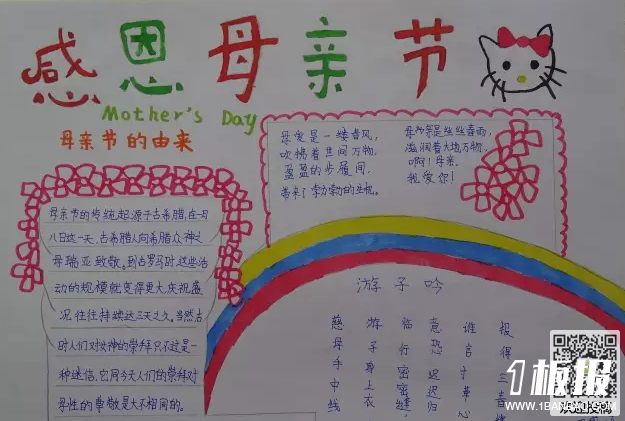 感恩母亲节
Mother's Day
母亲节的由来
母亲节的传统起源于古希腊,在一月
八日这一天,古希腊人向希腊众神之
母瑞亚致敬。到古罗马时,这些活
动的规模就变得更大,庆祝盛
况往往持续达三天之久。当然,古
时人们对女神的崇拜只不过是一
种迷信,它同今天人们的崇拜对
母性的尊敬是大不相同的。
母爱是一缕春风,
吹拂着世间万物,
盈盈的步履间,
带来了勃勃的生机。
母爱是丝丝春雨,
滋润着大地万物,
啊!母亲,
我爱你!
游子吟
慈母手中线
游子身上衣
临行密密缝
意恐迟迟归
谁言寸草心
报得三春
1板报
WWW.1BANBAO.COM
欢迎投稿